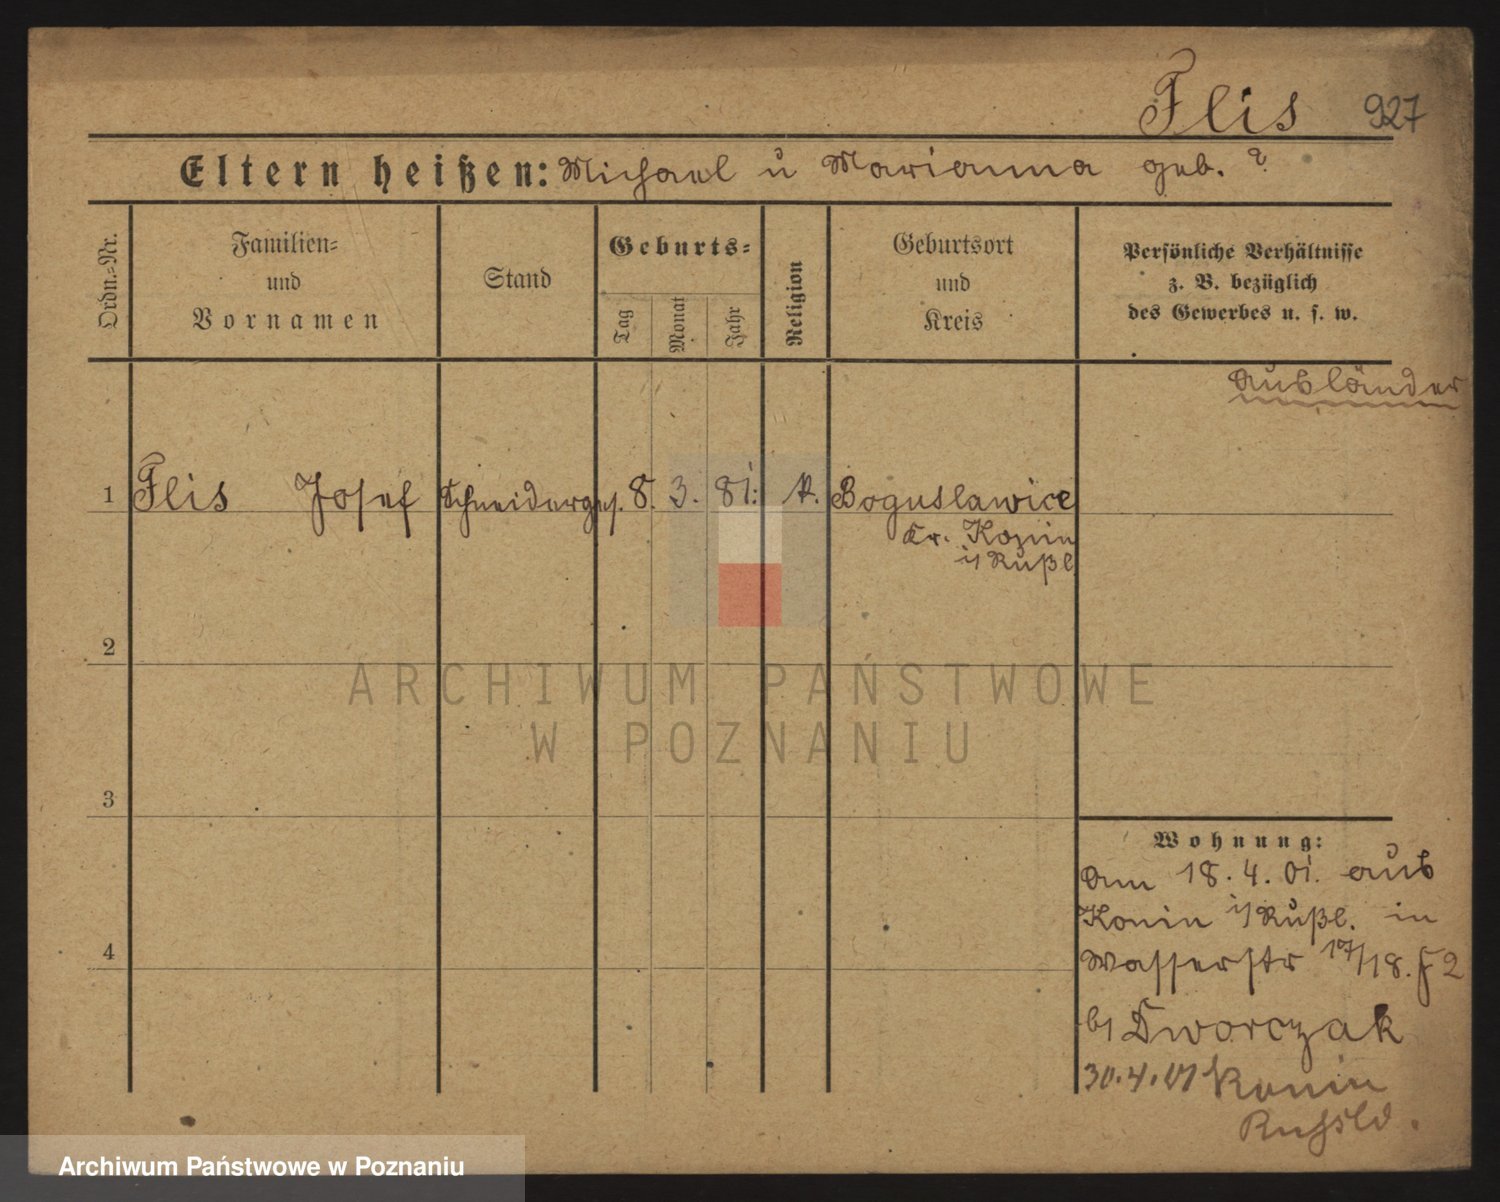 Flis 927
Eltern heißen: Michael u Marianna geb. ?
Ordn.=Nr.
Familien=
und
Vornamen
Stand
Geburts=
Tag
Monat
Jahr
Religion
Geburtsort
und
Kreis
Persönliche Verhältnisse
z. B. bezüglich
des Gewerbes u. s. w.
Ausländer
1 Flis Josef Schneiderges. 8. 3. 81. k. Boguslawice
Kr. Konin
i/ Rußl
2
3
4
ARCHIWUM PAŃSTWOWE
W POZNANIU
Wohnung:
Am 18. 4. 01. aus
Konin i/ Rußl. in
Wasserstr 17/18. 2
b/ Dworczak
30.4.01 Konin
Russld.
Archiwum Państwowe w Poznaniu